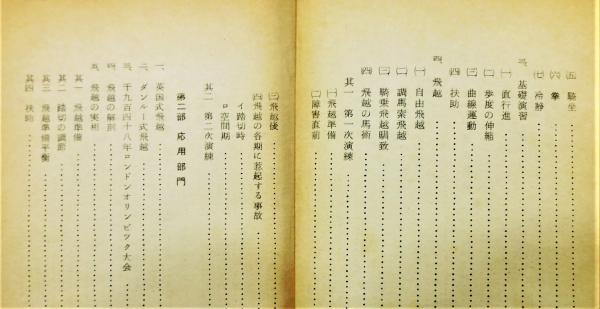 ㈤ 騎坐
㈥ 拳
㈦ 冷静
三、基礎演習
㈠ 直行進
㈡ 歩度の伸縮
㈢ 曲線運動
㈣ 扶助
四、飛越
㈠ 自由飛越
㈡ 調馬索飛越
㈢ 騎乗飛越馴致
㈣ 飛越の馬術
其一 第一次演練
㈠ 飛越準備
㈡ 障害直前
㈢ 飛越後
㈣ 飛越の各期に惹起する事故
イ 踏切時
ロ 空間期
其二 第二次演練
第二部 応用部門
一、英国式飛越
二、ダンルー式飛越
三、千九百四十八年ロンドンオリンピツク大会
四、飛越の解剖
五、飛越の実相
其一 飛越準備
其二 踏切の調節
其三 飛越準備平衡
其四 扶助